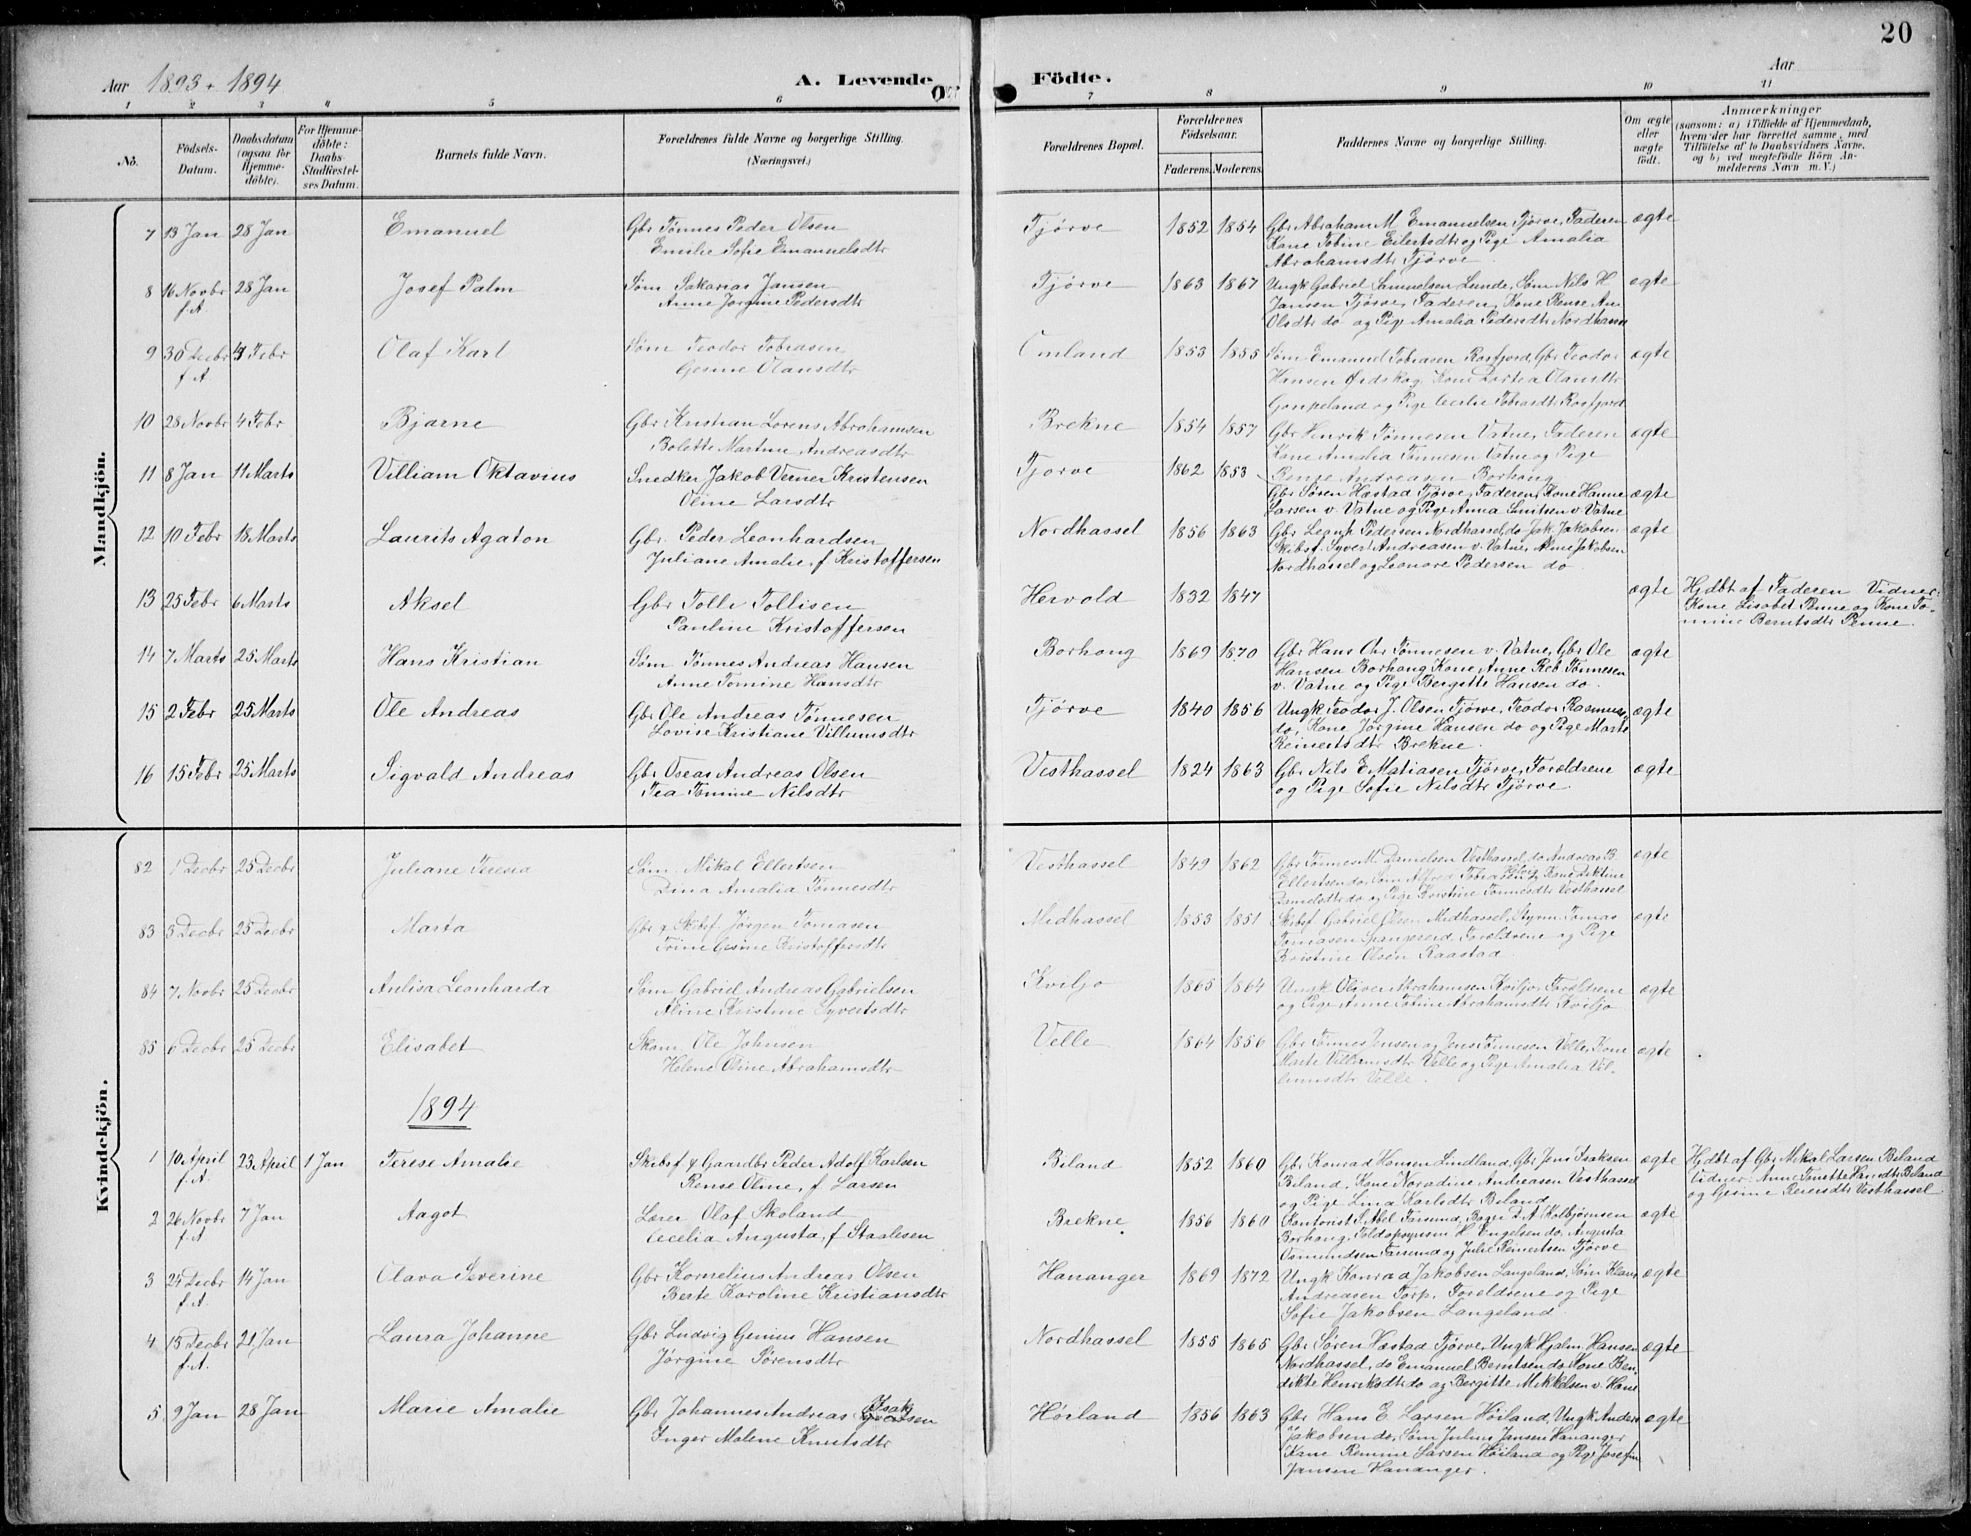 20
Aar 1893 + 1894
A. Levende
Födte.
Aar
1 2 3 4 5 6 7 8 9 10 11
No.
Födsels-
Datum.
Daabsdatum
(ogsaa for
Hjemme-
döbte).
For Hjemme-
döbte:
Daabs-
Stadfæstel-
ses Datum.
Barnets fulde Navn.
Forældrenes fulde Navne og borgerlige Stilling.
(Næringsvei.)
Forældrenes Bopæl.
Forældrenes
Födselsaar.
Faderens. Moderens.
Faddernes Navne og borgerlige Stilling.
Om ægte
eller
uægte
födt.
Anmærkninger
(saasom: a) i Tilfælde af Hjemmedaab,
hvem der har forrettet samme, med
Tilföielse af to Daabsvidners Navne,
og b) ved uægtefödte Börn An-
melderens Navn m. V.)
Mandkjön.
7 13 Jan 28 Jan Emanuel Gbr Tønnes Peder Olsen Tjørve 1852 1854 Gbr Abraham M Emanuelsen Tjørve, Faderen ægte
Emilie Sofie Emanuelsdtr Kone Tobine Eilertsdtr og Pige Amalia
Abrahamsdtr Tjørve
8 16 Novbr 28 Jan Josef Palm Søm Sakarias Jansen Tjørve 1863 1867 Ungk Gabriel Samuelsen Lunde, Søm Nils H ægte
f.A Anne Jørgine Pedersdtr Jansen Tjørve, Faderen, Kone Rense An
Olsdtr do og Pige Amalia Pedersdtr Nordhassel
9 30 Decbr 4 Febr Olaf Karl Søm Teodor Tobiasen Omland 1853 1855 Søm Emanuel Tobiasen Rosfjord, Gbr Teodor ægte
f.A. Gesine Olausdtr Hansen Ørdskog, Kone Dortea Olausdtr
og Pige Cecilie Tobiasdtr Rosfjord
10 28 Novbr 4 Febr Bjarne Gbr Kristian Lorens Abrahamsen Brekne 1854 1857 Gbr Henrik Tønnesen Vatne, Faderen ægte
Bolette Martine Andreasdtr Kone Amalia Tønnesen Vatne og Pige
Rense Andreasen Borhaug
11 8 Jan 11 Marts Villiam Oktavius Snedker Jakob Verner Kristensen Tjørve 1862 1853 Gbr Søren Hæstad Tjørve, Faderen, Kone Hanne ægte
Oline Larsdtr Larsen v. Vatne og Pige Anna Knutsen v. Vatne
12 10 Febr 18 Marts Laurits Agaton Gbr. Peder Leonhardsen Nordhassel 1856 1863 Gbr Pedersen Nordhassel, do Jak. Jakobsen ægte
Juliane Amalie, f Kristoffersen Skibsf. Syvert Andreasen v. Vatne, Jakobsen
Nordhassel og Leonore Pedersen do
13 25 Febr 6 Marts Aksel Gbr Tolli Tollisen Hervold 1832 1847 ægte Hjdbt af Faderen Vidner:
Pauline Kristoffersen Kone Lisabet Penne og Kone To-
mine Berntsdtr Penne.
14 7 Marts 25 Marts Hans Kristian Søm Tønnes Andreas Hansen Borhaug 1869 1870 Gbr Hans Chr Tønnesen v. Vatne, Gbr Ole ægte
Anne Tomine Hansdtr Hansen Borhaug, Kone Anne Reb. Tønnesen
v. Vatne og Pige Bergitte Hansen do.
15 2 Febr 25 Marts Ole Andreas Gbr Ole Andreas Tønnesen Tjørve 1840 1856 Ungk Teodor J. Olsen Tjørve, Teodor Rasmus. ægte
Lovise Kristiane Villumsdtr do, Kone Jørgine Hansen do og Pige Marte
Reinertsdtr Brekne.
16 15 Febr 25 Marts Sigvald Andreas Gbr Oseas Andreas Olsen Vesthassel 1824 1863 Gbr Nils E. Matiasen Tjørve, Forældrene ægte
Tea Tomine Nilsdtr og Pige Sofie Nilsdtr Tjørve.
Kvindekjön.
82 1 Decbr 25 Decbr Juliane Teresia Søm. Mikal Ellertsen Vesthassel 1849 1862 Gbr Tønnes M. Danielsen Vesthassel, do Andreas B. ægte
Dina Amalia Tønnesdtr Ellertsen do, Søm Alfred Tobiasen Kone
Danielsdtr do og Pige Kirstine Tønnesdtr Vesthassel
83 3 Decbr 25 Decbr Marta Gbr & Skibsf. Jørgen Tomasen Midhassel 1853 1851 Skibsf Gabriel Olsen Midhassel, Styrm Tomas ægte
Trine Gesine Kristoffersdtr Tomasen Spangereid, Forældrene og Pige
Kristine Olsen Raastad.
84 7 Novbr 25 Decbr Anlisa Leonharda Søm Gabriel Andreas Gabrielsen Kviljo 1865 1864 Ungk Oliver Abrahamsen Kviljo, Forældrene ægte
Aline Kristine Syvertsdtr og Pige Anne Tobine Abrahamsdtr Kviljo
85 6 Decbr 25 Decbr Elisabet Skom. Ole Johnsen Velle 1864 1856 Gbr Tønnes Jensen og Jens Tønnesen Velle, Kone ægte
Helene Oline Abrahamsdtr Marte Villumsdtr Velle og Pige Amalia Vil-
lumsdtr Velle.
1894
1 10 April 23 April 1 Jan Terese Amalie Skibsf & Gaardbr Peder Adolf Karlsen Biland 1852 1860 Gbr Konrad Hansen Lindland, Gbr Jens Isaksen ægte Hjdbt af Gbr Mikal Larsen Biland
f.A. Rense Oline, f. Larsen Biland, Kone Noradine Andreasen Vesthassel Vidner: Anne Tonette Hansdtr Biland
og Pige Lina Karlsdtr Biland og Gesine Reiersdtr Vesthassel
2 26 Novbr 7 Jan Aagot Lærer Olaf Skoland Brekne 1856 1860 Kontorist S. Abel Farsund, Bager D. A. Kolbjørnsen ægte
f.A Cecelia Augusta, f Staalesen Borhaug, Toldopsynsm H Engelsen do, Augusta
Osmundsen Farsund og Julie Reinertsen Tjørve
3 24 Decbr 14 Jan Olava Severine Gbr Kornelius Andreas Olsen Hananger 1869 1872 Ungk Konrad Jakobsen Langeland, Søm Klaus ægte
f.A. Berte Karoline Kristiansdtr Andreasen Torp, Forældrene og Pige
Sofie Jakobsen Langeland
4 15 Decbr 21 Jan Laura Johanne Gbr Ludvig Genius Hansen Nordhassel 1855 1865 Gbr Søren Hæstad Tjørve, Ungk Hjalm. Hansen ægte
f.A. Jørgine Sørensdtr Nordhassel, do Emanuel Berntsen do, Kone Ben-
dikte Henriksdtr do og Bergitte Mikkelsen v. Hau
5 9 Jan 28 Jan Marie Amalie Gbr Johannes Andreas Isaksen Høiland 1856 1863 Gbr Hans E. Larsen Høiland, Ungk Anders ægte
Inger Malene Knutsdtr Jakobsen do, Søm Julius Jansen Hananger
Kone Remine Larsen Høiland og Pige Josefin
Jansen Hananger.